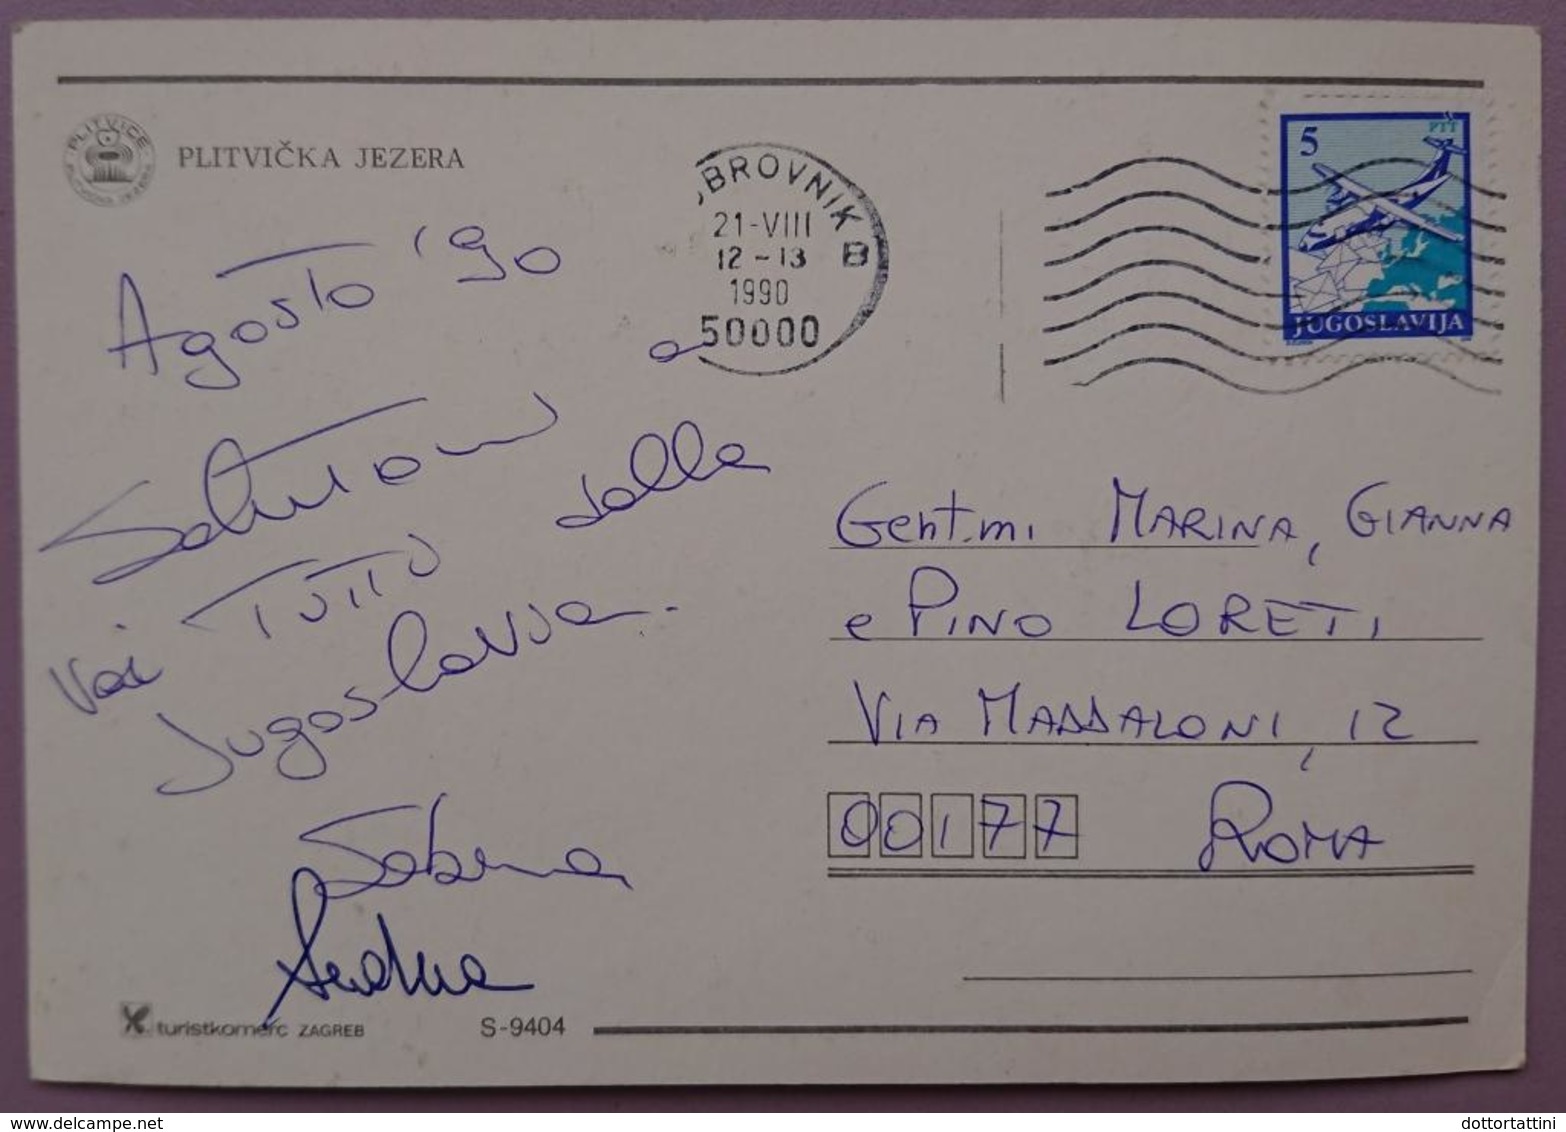 PLITVICE
PLITVIČKA JEZERA
Agosto '90
Salutoni a
voi tutti dalla
Jugoslavia.
Sabrina
Andrea
turistkomerc ZAGREB
S-9404
UBROVNIK B
21-VIII
12-13
1990
50000
5
PTT
JUGOSLAVIJA
Gent.mi MARINA, GIANNA
e PINO LORETI
VIA MADDALONI, 12
00177 ROMA
dottortattini